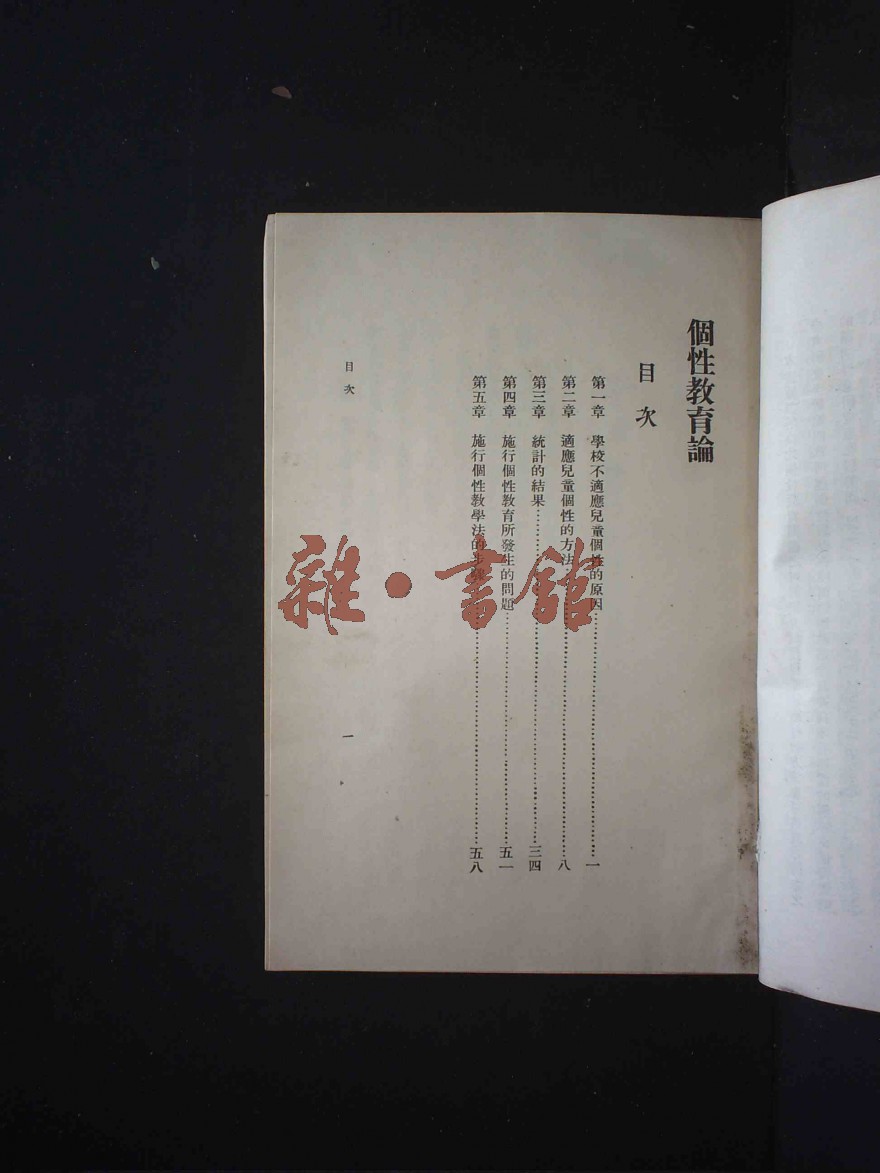 個性教育論
目次
第一章 學校不適應兒童個性的原因……一
第二章 適應兒童個性的方法……八
第三章 統計的結果……三四
第四章 施行個性教育所發生的問題……五一
第五章 施行個性教學法的步驟……五八
目次
一
雜·書館